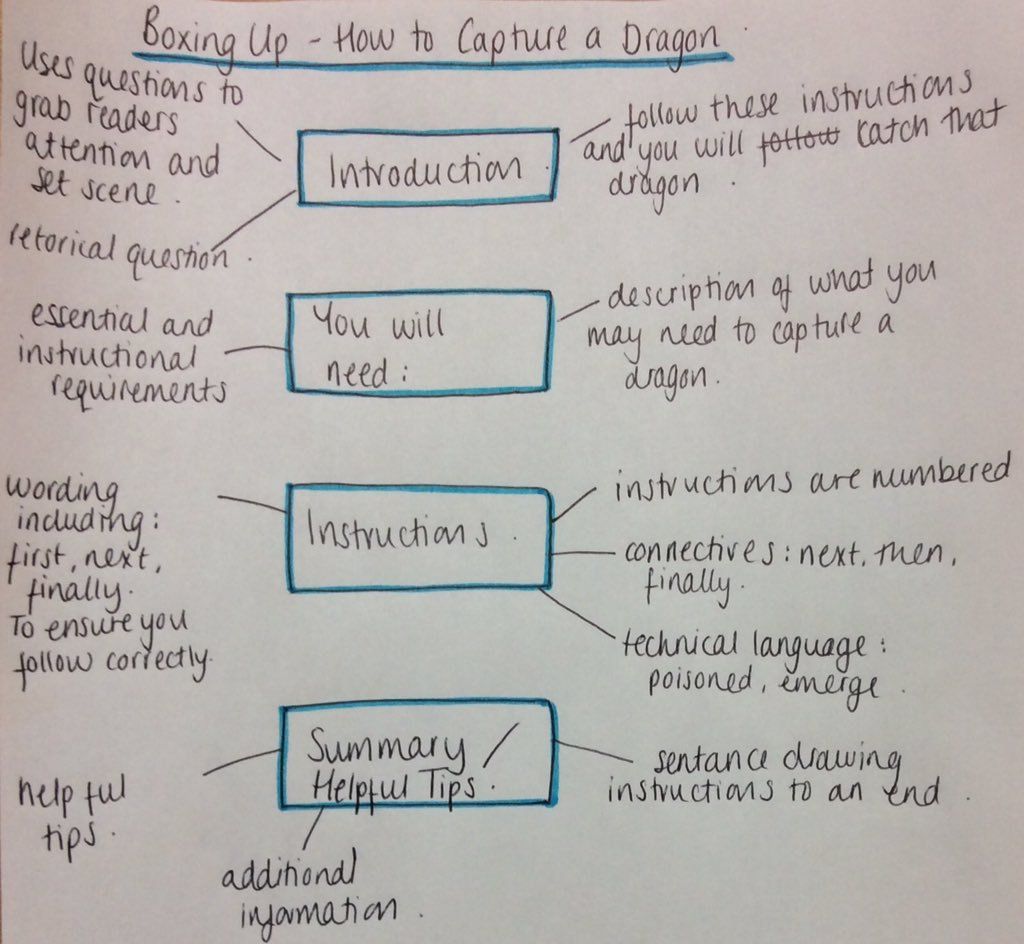 Boxing Up - How to Capture a Dragon.
Uses questions to
grab readers
attention and
set scene.
retorical question.
Introduction.
follow these instructions
and you will follow catch that
dragon.
essential and
instructional
requirements
You will
need:
description of what you
may need to capture a
dragon.
wording
including:
first, next,
finally.
To ensure you
follow correctly.
Instructions.
instructions are numbered
connectives: next, then,
finally.
technical language:
poisoned, emerge.
helpful
tips.
Summary /
Helpful Tips.
additional
information.
sentence drawing
instructions to an end.